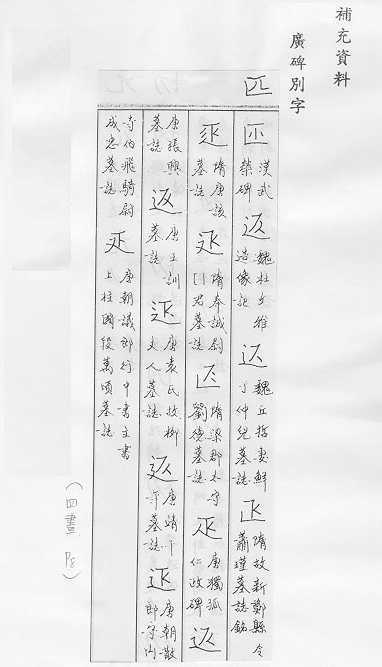 補充資料
廣碑別字
匹
漢武榮碑 魏杜文雍造像記 魏丘哲妻鮮于仲兒墓誌 隋故新鄭縣令蕭瑾墓誌銘
隋唐該墓誌 隋奉誠尉□君墓誌 隋梁郡太守劉德墓誌 唐獨孤仁政碑
唐張興墓誌 唐王訓墓誌 唐袁氏故柳夫人墓誌 唐靖千年墓誌 唐朝散郎守內
寺伯飛騎尉成忠墓誌 唐朝議郎行中書主書上柱國段萬頃墓誌
(四畫 P8)